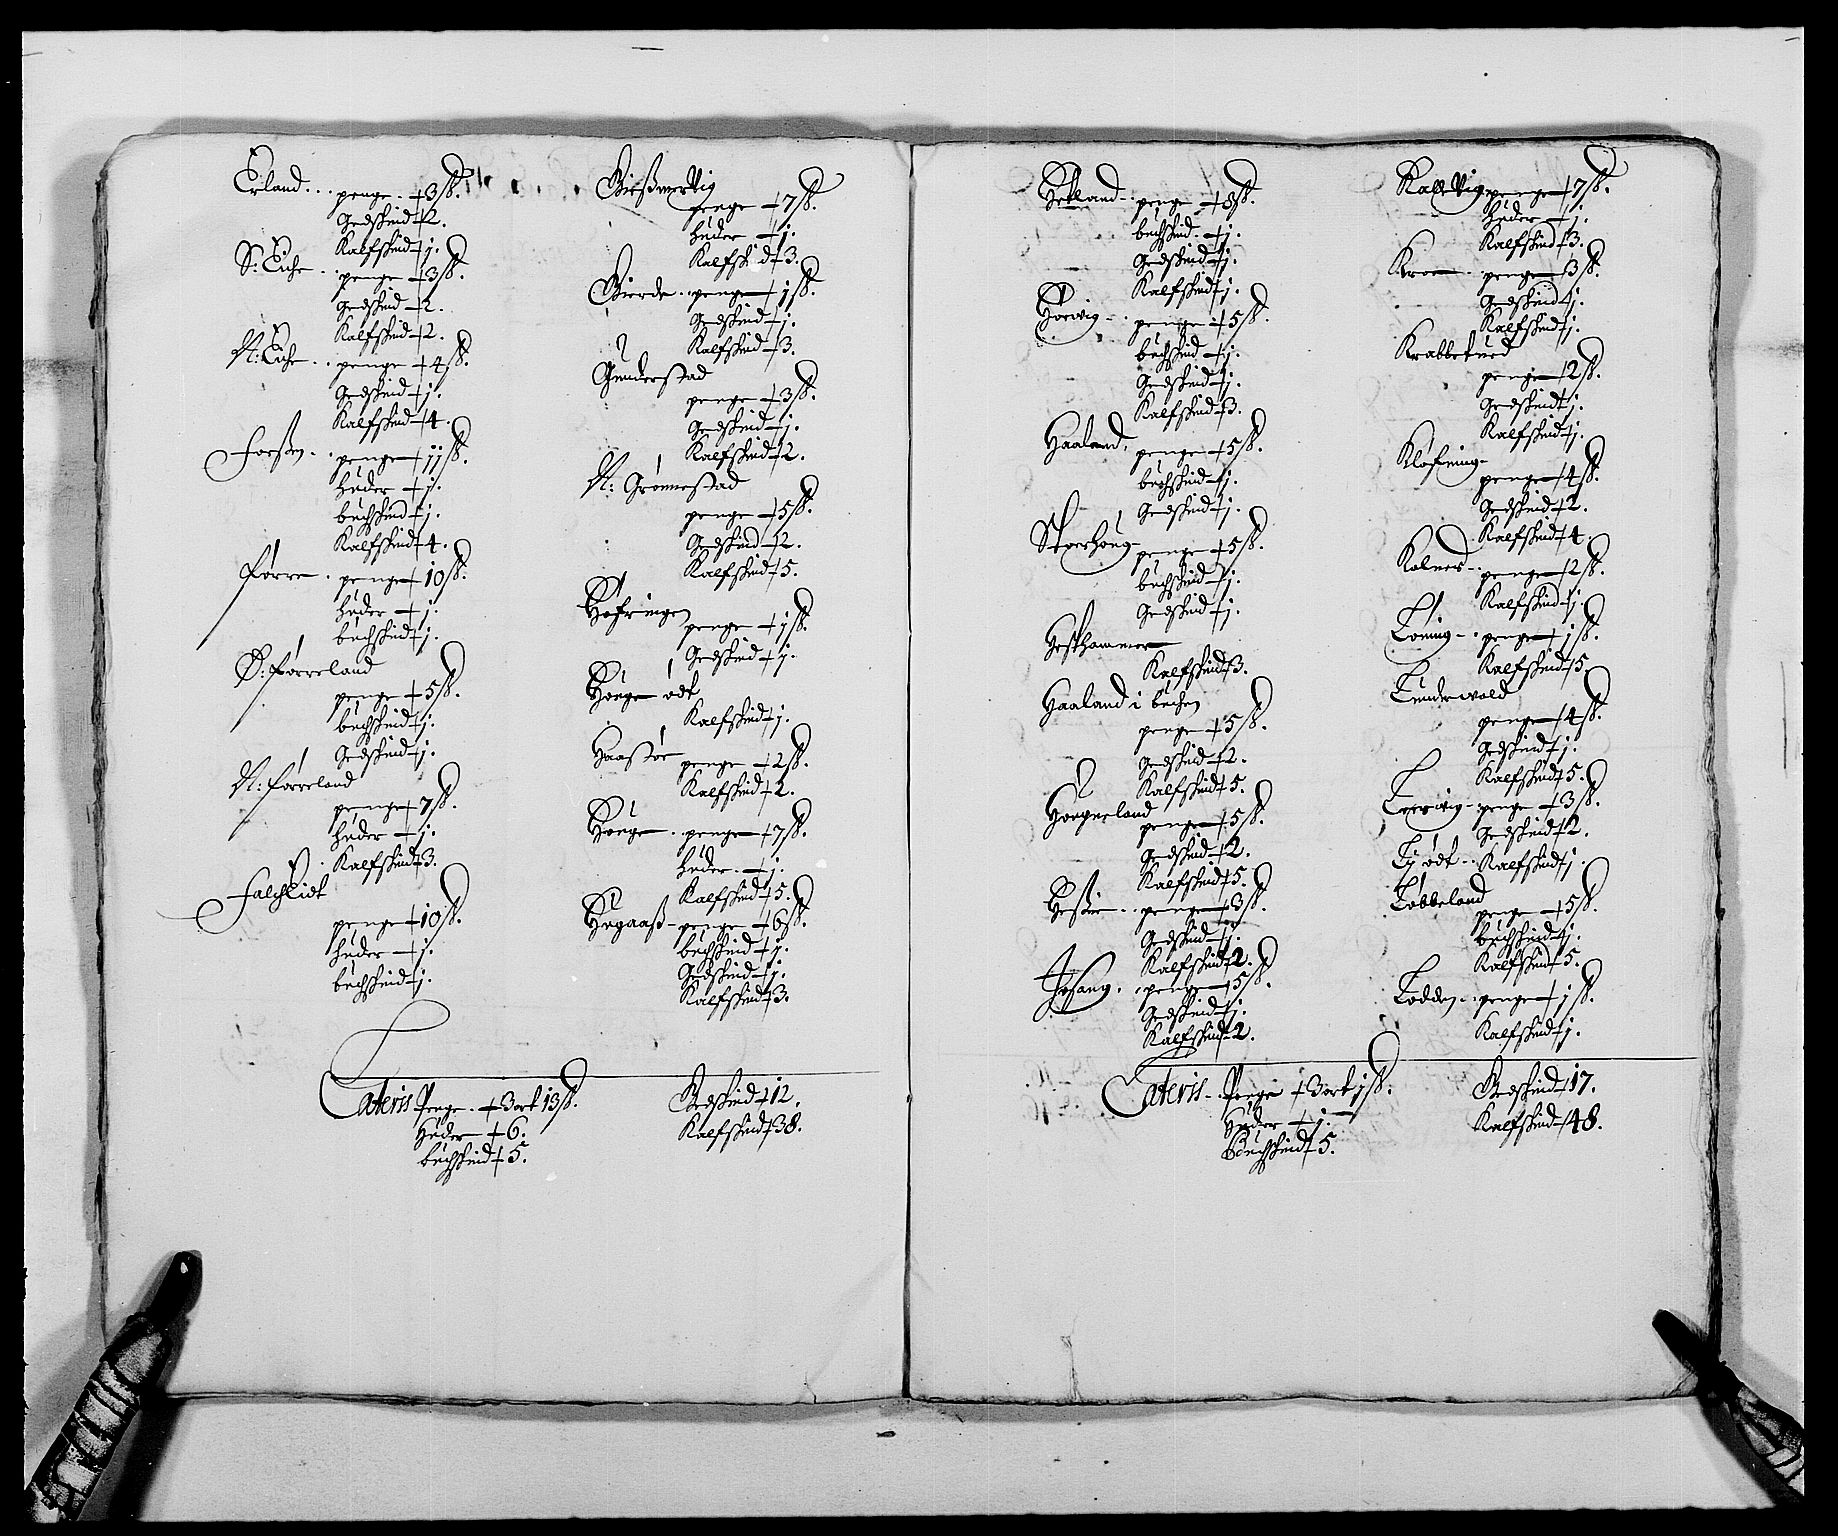 Erland... penge - 3 ß.
Gedskind - 2.
Kalfskind - j.
S: Eiche .. penge - 3 ß.
Gedskind - 2.
Kalfskind - 2.
N: Eiche .. penge - 4 ß.
Gedskind - j.
Kalfskind - 4.
penge - jj ß.
Huder - j.
buchskind - j.
Kalfskind - 4.
Førre . penge - 10 ß.
Huder - j.
buchskind - j.
S: Førreland
penge - 5 ß.
buchskind - j.
Gedskind - j.
N: Førreland
penge - 7 ß.
Huder - j.
Kalfskind - 3.
Falchlidt
penge - 10 ß.
Huder - j.
buchskind - j.
penge - 7 ß.
Huder - j.
Kalfskind - 3.
Gierde . penge - j ß.
Gedskind - j.
Kalfskind - 3.
Gunderstad
penge - 3 ß.
Gedskind - j.
Kalfskind - 2.
N: Grønnestad
penge - 5 ß.
Gedskind - 2.
Kalfskind - 5.
Høfringen
penge - j ß.
Gedskind - j.
Houge ødt
Kalfskind - j.
Haastøe
penge - 2 ß.
Kalfskind - 2.
Houge . penge - 7 ß.
Huder - j.
Kalfskind - 5.
Hogaaß - penge - 6 ß.
buchskind - j.
Gedskind - j.
Kalfskind - 3.
Lateris Penge - 3 ort 13 ß.
Huder - 6.
buchskind - 5.
Gedskind - 12.
Kalfskind - 38.
penge - 8 ß.
buchskind - j.
Gedskind - j.
Kalfskind - j.
Horwig - . penge - 5 ß.
buchskind - j.
Gedskind - j.
Kalfskind - 3.
Haaland, penge - 5 ß.
buchskind - j.
Gedskind - j.
Storhoug -
penge - 5 ß.
buchskind - j.
Gedskind - j.
Hesthammer
Kalfskind - 3.
Haaland i
penge - 5 ß.
Gedskind - 2.
Kalfskind - 5.
Hougneland
penge - 5 ß.
Gedskind - 2.
Kalfskind - 5.
penge - 3 ß.
Gedskind - j.
Kalfskind - 2.
Josang . . penge - 5 ß.
Gedskind - j.
Kalfskind - 2.
Kalle Vig penge - 7 ß.
Huder - j.
Kalfskind - 3.
penge - 3 ß.
Gedskind - j.
Kalfskind - j.
penge - 2 ß.
Gedskind - j.
Kalfskind - j.
penge - 4 ß.
Gedskind - 2.
Kalfskind - 4.
Kolnes - . penge - 2 ß.
Kalfskind - j.
Loning - . penge - j ß.
Kalfskind - 5
Lunderwold
penge - 4 ß.
Gedskind - j.
Kalfskind - 5.
Leerwig - penge - 3 ß.
Gedskind - 2.
Kalfskind - j.
Løbbeland
penge - 5 ß.
buchskind - j.
Kalfskind - 5.
Lodden . penge - j ß.
Kalfskind - j.
Lateris - . Penge - 3 ort j ß.
Huder - j.
Buchskind - 5.
Gedskind - 17.
Kalfskind - 48.